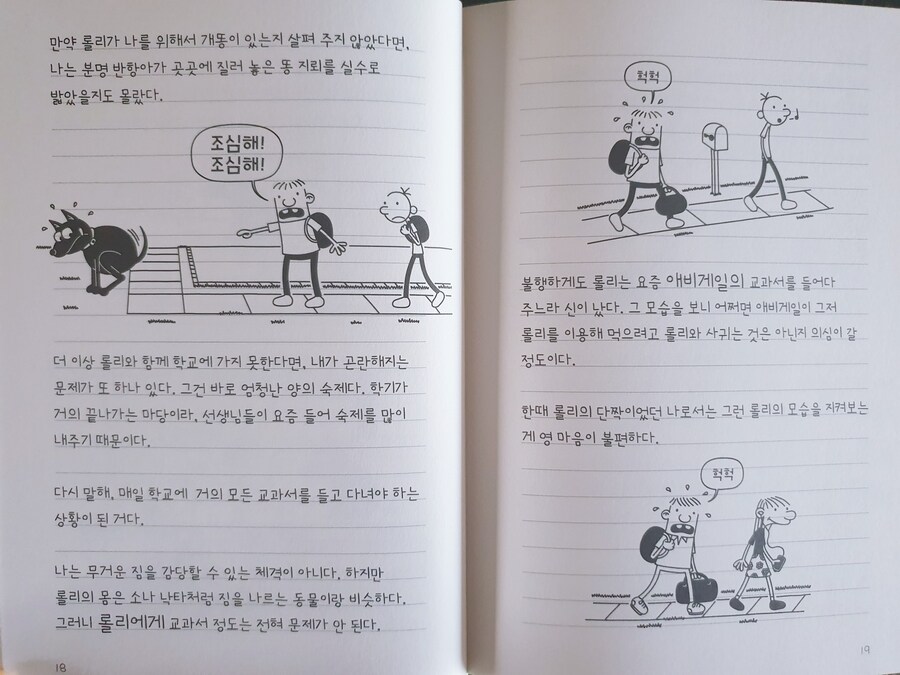 만약 롤리가 나를 위해서 개똥이 있는지 살펴 주지 않았다면,
나는 분명 반항아가 곳곳에 질러 놓은 똥 지뢰를 실수로
밟았을지도 몰랐다.
조심해!
조심해!
더 이상 롤리와 함께 학교에 가지 못한다면, 내가 곤란해지는
문제가 또 하나 있다. 그건 바로 엄청난 양의 숙제다. 학기가
거의 끝나가는 마당이라, 선생님들이 요즘 들어 숙제를 많이
내주기 때문이다.
다시 말해, 매일 학교에 거의 모든 교과서를 들고 다녀야 하는
상황이 된 거다.
나는 무거운 짐을 감당할 수 있는 체격이 아니다. 하지만
롤리의 몽은 소나 낙타처럼 짐을 나르는 동물이랑 비슷하다.
그러니 롤리에게 교과서 정도는 전혀 문제가 안 된다.
18
헉헉
불행하게도 롤리는 요즘 애비게일의 교과서를 들어다
주느라 신이 났다. 그 모습을 보니 어쩌면 애비게일이 그저
롤리를 이용해 먹으려고 롤리와 사귀는 것은 아닌지 의심이 갈
정도이다.
한때 롤리의 단짝이었던 나로서는 그런 롤리의 모습을 지켜보는
게 영 마음이 불편하다.
헉헉
19